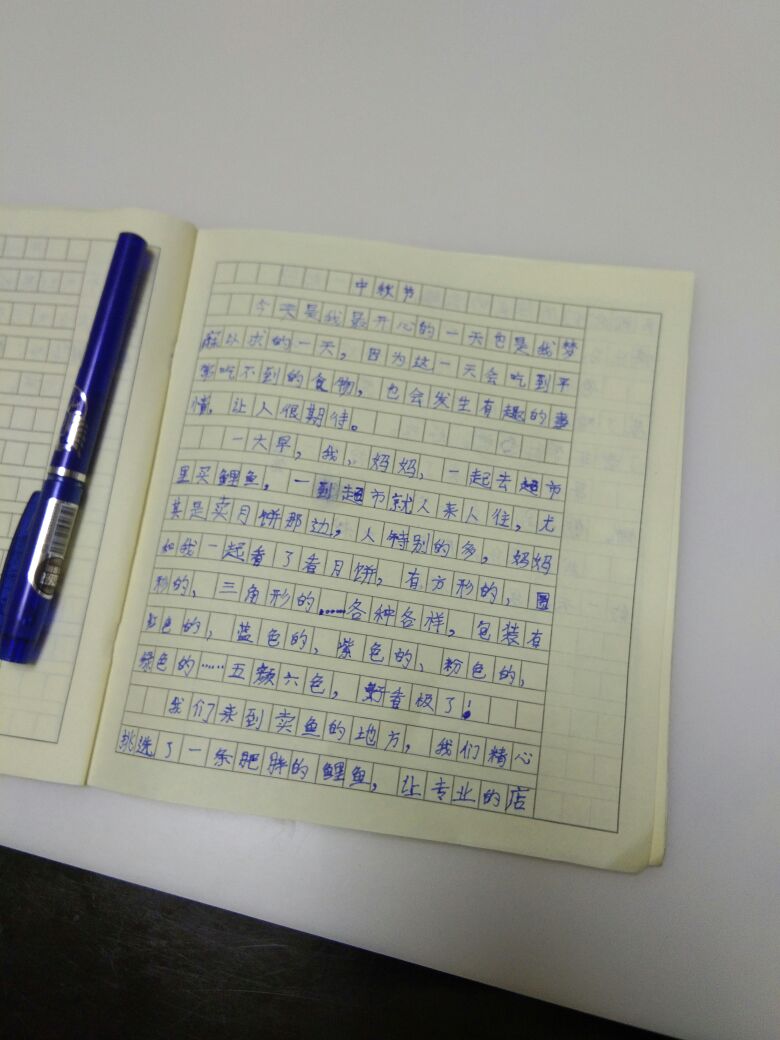 中秋节
今天是我最开心的一天也是我梦
寐以求的一天，因为这一天会吃到平
常吃不到的食物，也会发生有趣的事
情，让人很期待。
一大早，我、妈妈、一起去超市
里买鲤鱼，一到超市就人来人住，尤
其是卖月饼那边，人特别的多，妈妈
和我一起看了看月饼，有方形的、圆
形的、三角形的……各种各样，包装有
红色的，蓝色的、紫色的、粉色的，
绿色的……五颜六色，好看极了！
我们来到卖鱼的地方，我们精心
挑选了一条肥胖的鲤鱼，让专业的店